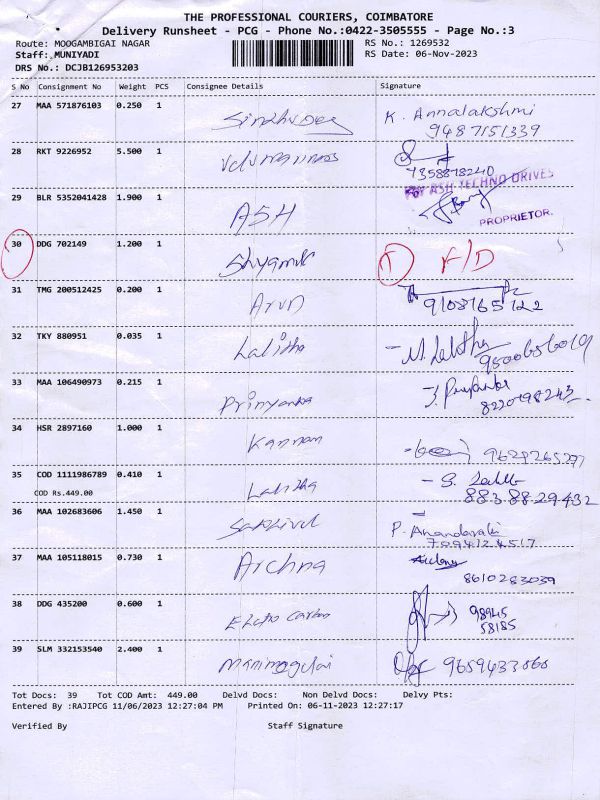 THE PROFESSIONAL COURIERS, COIMBATORE
Delivery Runsheet - PCG - Phone No.:0422-3505555 - Page No.:3
Route: MOOGAMBIGAI NAGAR RS No.: 1269532
Staff: MUNIYADI RS Date: 06-Nov-2023
DRS No.: DCJB126953203
S No Consignment No Weight PCS Consignee Details Signature
27 MAA 571876103 0.250 1 K. Annalakshmi
9487151339
28 RKT 9226952 5.500 1
7358878240
FOR ASH TECHNO DRIVES
29 BLR 5352041428 1.900 1 ASH
PROPRIETOR.
30 DDG 702149 1.200 1 1 F/D
31 TMG 200512425 0.200 1 Arun
9108765722
32 TKY 880951 0.035 1 Lalitha M. Lalitha
33 MAA 106490973 0.215 1 Priyanka J. Priyanka
8220798243
34 HSR 2897160 1.000 1 Kannan
35 COD 1111986789 0.410 1 Lalitha
COD Rs.449.00 88.38.829432
36 MAA 102683606 1.450 1 Sakthivel
7094124517
37 MAA 105118015 0.730 1 Archna Archna
8610283039
38 DDG 435200 0.600 1 Electro Carbon 98945
58185
39 SLM 332153540 2.400 1
Tot Docs: 39 Tot COD Amt: 449.00 Delvd Docs: Non Delvd Docs: Delvy Pts:
Entered By :RAJIPCG 11/06/2023 12:27:04 PM Printed On: 06-11-2023 12:27:17
Verified By Staff Signature